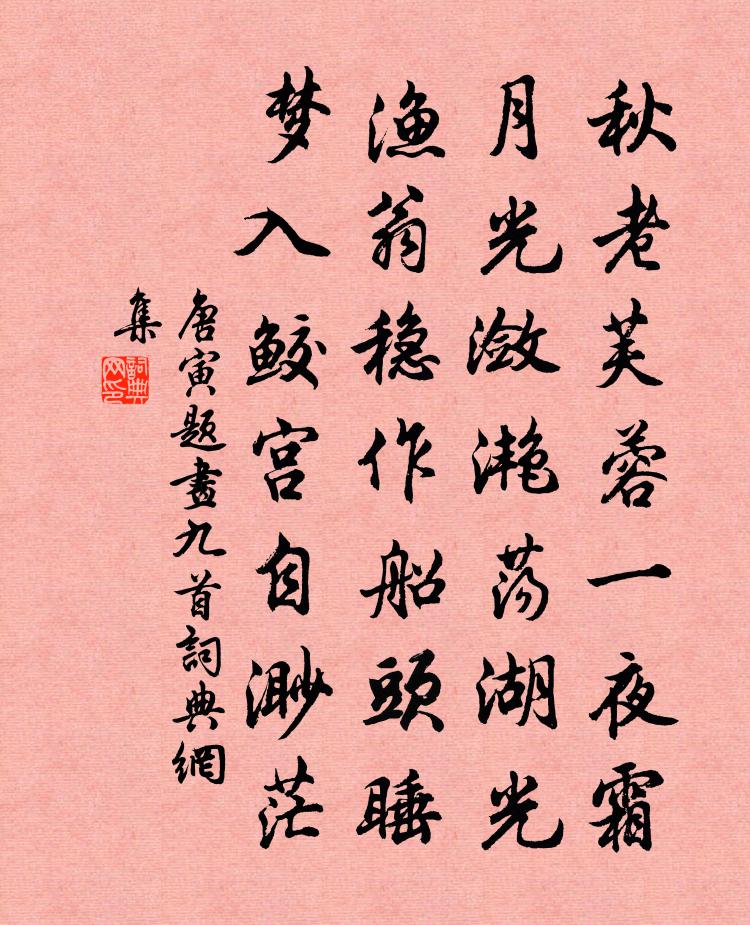 秋老芙蓉一夜霜
月光潋滟荡湖光
渔翁稳作船頭睡
梦入鲛宫自渺茫
唐寅题畫九首詞典網
集
詞典
网印